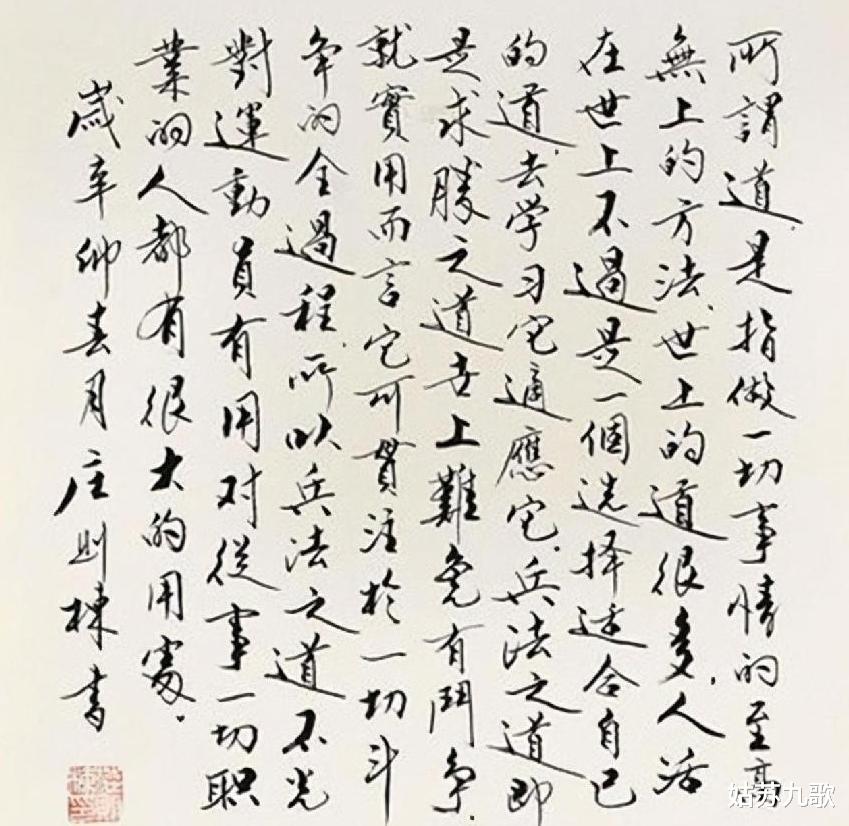 所謂道.是指做一切事情的至高
無上的方法.世上的道很多.人活
在世上不過是一個选择适合自己
的道.去学习它適應它.兵法之道即
是求勝之道世上難免有鬥爭.
就實用而言它可貫注於一切斗
争的全過程.所以兵法之道不光
對運動員有用对從事一切职
業的人都有很大的用處.
歲辛卯春月庄则棟書
姑苏九歌